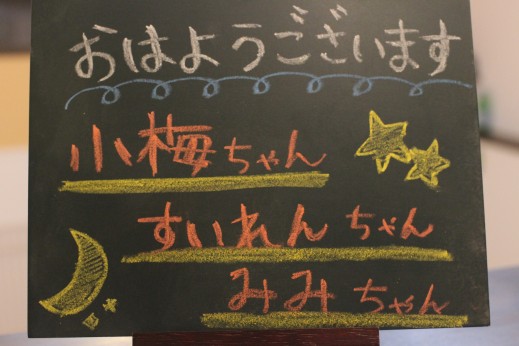 おはようございます
小梅ちゃん
すいれんちゃん
みみちゃん